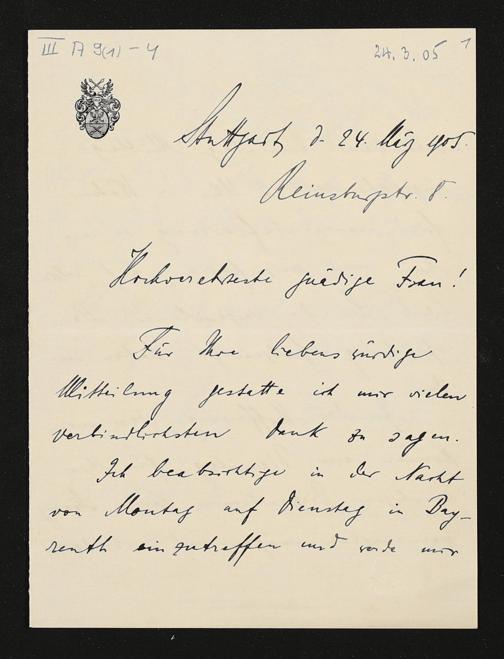 III A 9(1) - 4
24. 3. 05
1
Stuttgart, d. 24. März 1905.
Reinsburgstr. 8.
Hochverehrteste gnädige Frau!
Für Ihre liebenswürdige
Mitteilung gestatte ich mir vielen
verbindlichsten Dank zu sagen.
Ich beabsichtige in der Nacht
von Montag auf Dienstag in Bay-
reuth einzutreffen und werde mir